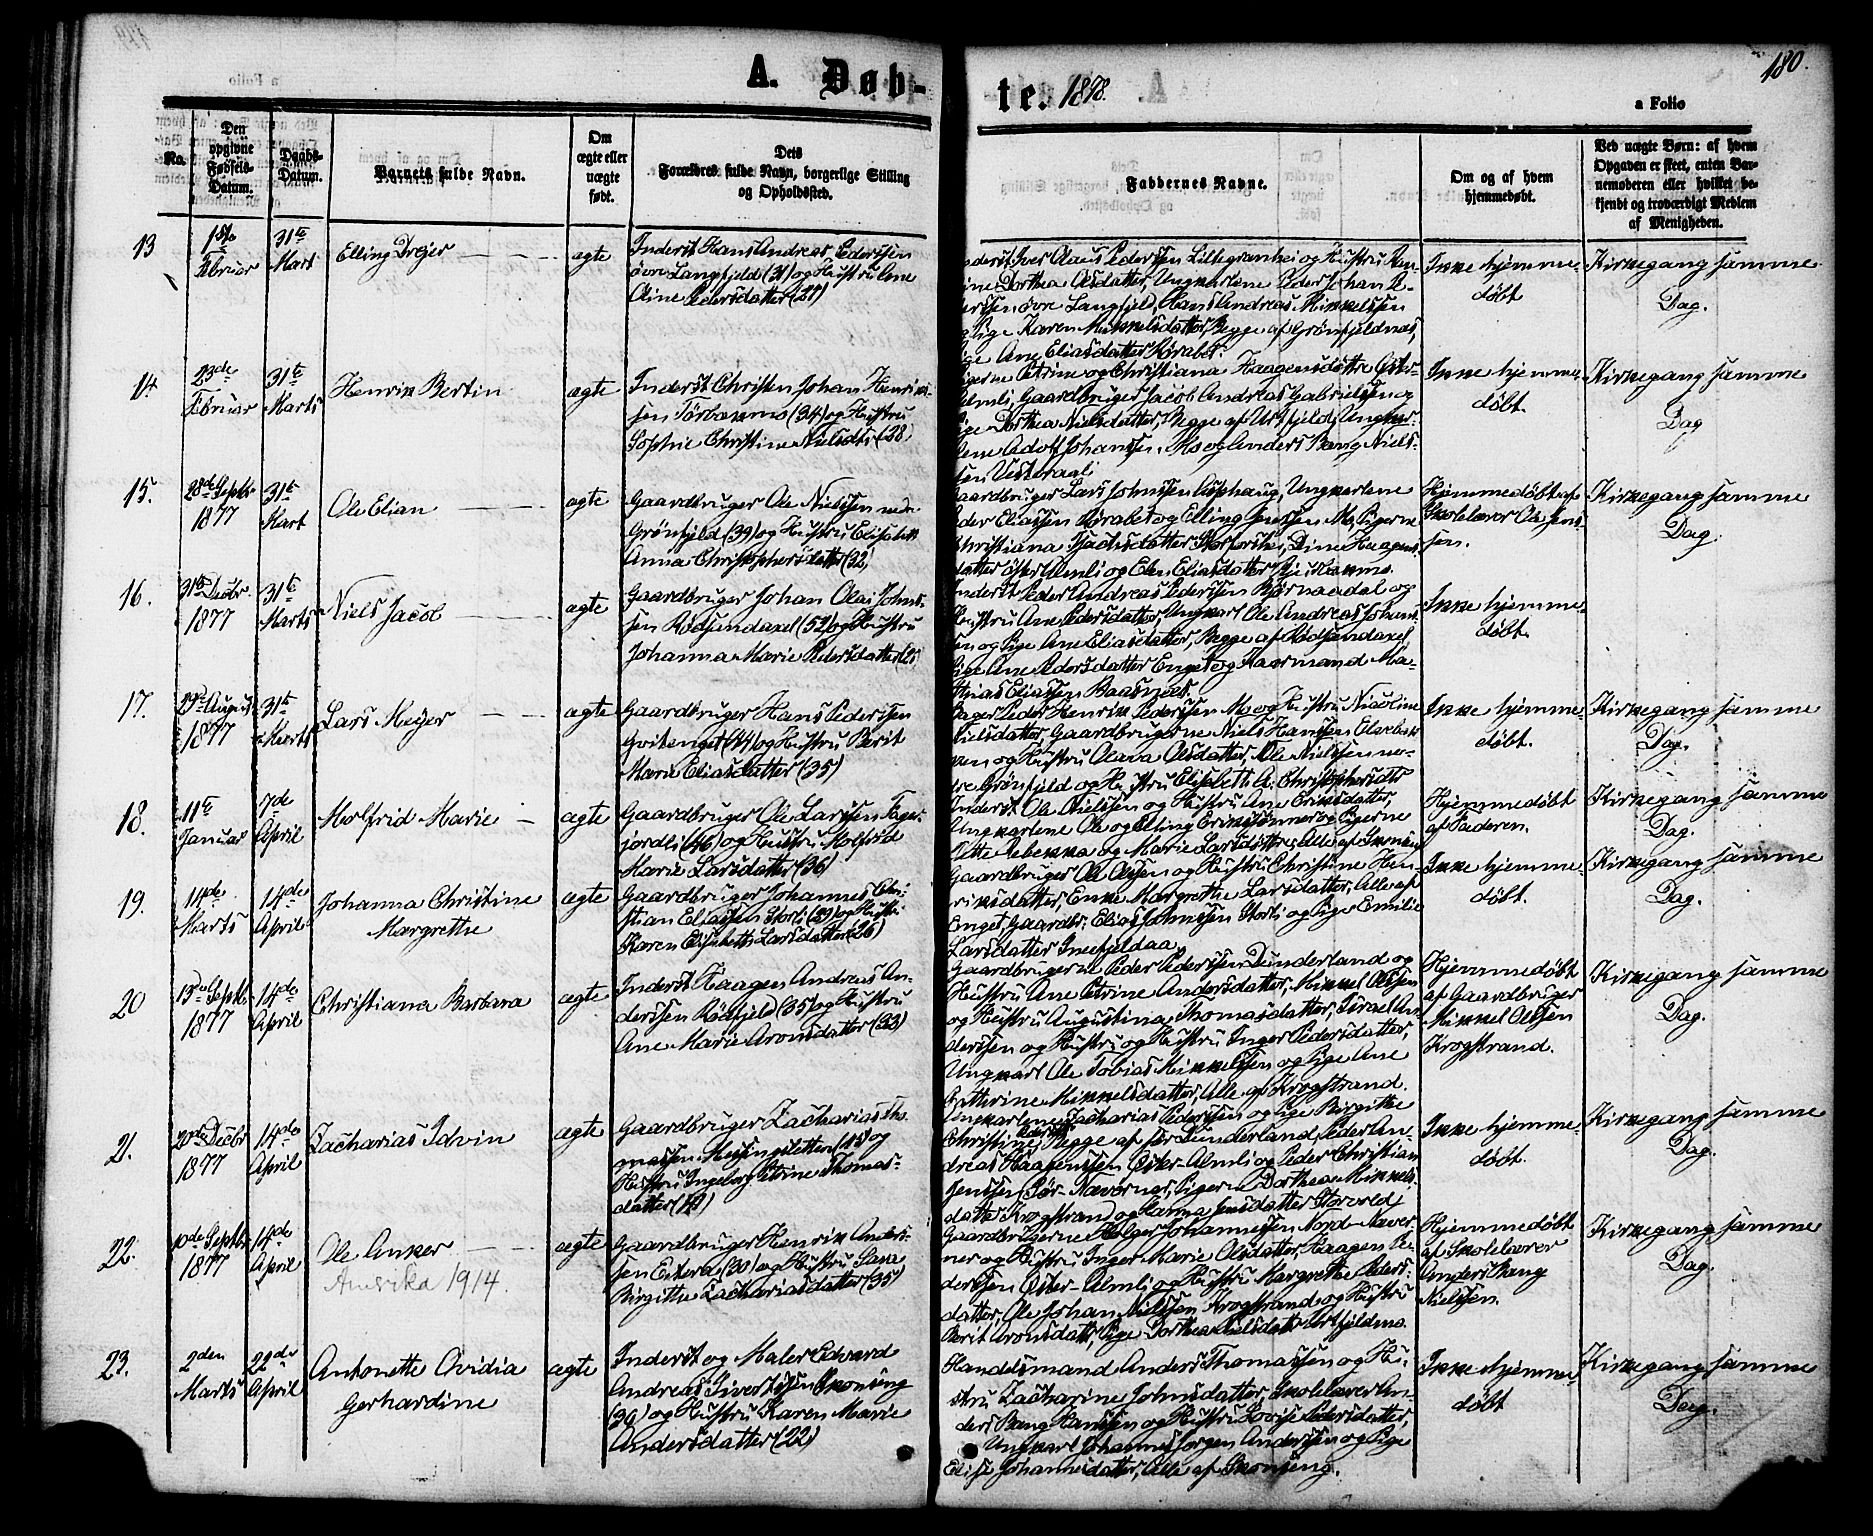 180.
A. Døb-
te. 1878.
a Folio
No.
Den
opgivne
Fødsels-
Datum.
Daabs-
Datum.
Barnets fulde Navn.
Om
ægte eller
uægte
født.
Dets
Forældres fulde Navn, borgerlige Stilling
og Opholdssted.
Faddernes Navne.
Om og af hvem
hjemmedøbt.
Ved uægte Børn: af hvem
Opgaven er skeet, enten Bar-
nemoderen eller hvilket be-
kjendt og troværdigt Medlem
af Menigheden.
13
Februar
31te
Mart
Elling Drejer
ægte
Inderst Hans Andreas Pedersen
øvre Langfjeld (31) og Hustru Ane
Oline Pedersdatter (27)
Inderst Iver Olaus Pedersen Lillegranhei og Hustru
Dorthea Olsdatter, Ungkarlene Peder Johan
øvre Langfjeld, Hans Andreas Mikkelsen
Pige Karen Mikkelsdatter, Begge af Grønfjeldnæs,
Ane Eliasdatter Rørabet.
Ikke hjemme-
døbt
Kirkegang samme
Dag.
14
23de
Februar
31te
Marts
Henrik Bertin
ægte
Inderst Christen Johan Henrik-
sen Tørbakmo (34) og Hustru
Sophie Christine Nielsdtr (28)
Pigerne Petrine og Christiana Haagensdøttre Øster-
Almli, Gaardbruger Jacob Andreas Gabrielsen og
Pige Dorthea Nielsdatter, Begge af Urtfjeld, Ungkar-
lene Adolf Johansen Mo og Anders Bang Niel-
sen Vesteraali
Ikke hjemme-
døbt.
Kirkegang samme
Dag
15.
28de Septbr
1877
31te
Mart
Ole Elian
ægte
Gaardbruger Ole Nielsen nedre
Grønfjeld (39) og Hustru Elisabeth
Anna Christophersdatter (32)
Gaardbruger Lars Johnsen Asphaug, Ungkarlene
Peder Eliassen Rørabet og Elling Jensen Mo, Pigerne
Christiana Isachsdatter Storforshei, Dine Haagens-
datter Øster Almli og Elen Eliasdatter
Hjemmedøbt af
Skolelærer Ole Jens-
sen.
Kirkegang samme
Dag.
16.
31te Decbr.
1877
31te
Marts
Niels Jacob
ægte
Gaardbruger Johan Olai Johns-
sen Rødsandaxel (52) og Hustru
Johanna Marie Pedersdatter
Inderst Peder Andreas Pedersen Bjørnaadal og
Hustru Ane Pedersdatter, Ungkarl Ole Andreas Johan-
sen og Pige Ane Eliasdatter, Begge af Rødsandaxel
Pige Ane Pedersdatter Enget og Kaarmand Ma-
thias Eliassen Baasmoes.
Ikke hjemme-
døbt.
17.
29de August
1877
31te
Marts
Lars Meyer
ægte
Gaardbruger Hans Pedersen
Gvitenget (44) og Hustru Berit
Marie Eliasdatter (35)
Peder Henrik Pedersen Mo og Hustru Nicoline
Nielsdatter, Gaardbrugerne Niels Hansen
og Hustru Olava Olsdatter, Ole Nielsen ne-
dre Grønfjeld og Hustru Elisabeth A. Christophersdtr
Ikke hjemme-
døbt.
Kirkegang samme
Dag.
18.
11te
Januar
7de
April
Molfrid Marie
ægte
Gaardbruger Ole Larsen Fager-
jordli (46) og Hustru Molfrid
Marie Larsdatter (36)
Inderst Ole Nielsen og Hustru Ane Eriksdatter,
Ungkarlene Ole og Elling Erikssønner og Pigerne
Mette Rebekka og Marie Larsdøttre, Alle af
Hjemmedøbt
af Faderen.
Kirkegang samme
Dag.
19.
14de
Marts
14de
April
Johanna Christine
Margrethe
ægte
Gaardbruger Johannes Chri-
stian Eliassen Storli (29) og Hustru
Karen Elisabeth Larsdatter (26)
Gaardbruger Ole Olsen og Hustru Christine Hen-
riksdatter, Enke Margrethe Larsdatter, Alle af
Enget, Gaardbr. Elias Johnsen Storli og Pige Emilie
Larsdatter
Ikke hjemme-
døbt.
Kirkegang samme
Dag.
20
13de Septb.
1877
14de
April
Christiana Barbara
ægte
Inderst Haagen Andreas An-
dersen Rødfjeld (35) og Hustru
Ane Marie Aronsdatter (33)
Gaardbrugerne Peder Pedersen Dunderland og
Hustru Ane Petrine Andersdatter, Mikkel Olsen
og Hustru Augustina Thomasdatter, Israel An-
dersen og Hustru og Hustru Inger Pedersdatter,
Ungkarl Ole Tobias Mikkelsen og Pige Ane
Cathrine Mikkelsdatter, Alle af Krogstrand.
Hjemmedøbt
af Gaardbruger
Mikkel Olsen
Krogstrand.
Kirkegang samme
Dag.
21.
20de Decbr
1877
14de
April
Zacharias Idvin
ægte
Gaardbruger Zacharias Tho-
massen Messingsletten (45) og
Hustru Ingeborg Petrine Thomas-
datter (40)
Ungkarlene Zacharias Pedersen og Pige Birgitte
Christine Pedersdtr Begge af Dunderland, Peder An-
dreas Haagensen Øster-Almli og Peder Christian
Jensen Sør-Nævernes, Pigerne Dorthea Mikkels-
datter Krogstrand og Hanna Jensdatter Storvold
Ikke hjemme-
døbt.
Kirkegang samme
Dag.
22.
10de Septbr
1877
14de
April
Ole Anker
Amerika 1914.
ægte
Gaardbruger Henrik Anders-
sen Eiterd. (30) og Hustru Sara
Birgitte Zachariasdatter (35)
Gaardbrugerne Holger Johannesen Nord-Næver-
nes og Hustru Inger Marie Olsdatter, Haagen Pe-
dersen Øster-Almli og Hustru Margrethe Peders-
datter, Ole Johan Nielsen Krogstrand og Hustru
Berit Aronsdatter, Pige Dorthea Nielsdatter Urtfjeldmo.
Hjemmedøbt
af Skolelærer
Anders Bang
Nielsen.
Kirkegang samme
Dag.
23.
2den
Marts
22de
April
Antonette Ovidia
Gerhardine
ægte
Inderst og Maler Edvard
Andreas Sivertsen Skonseng
(30) og Hustru Karen Marie
Andersdatter (22)
Handelsmand Anders Thomassen og Hu-
stru Zacharine Johnsdatter, Skolelærer An-
ders Bang Hansen og Hustru Lovise Pedersdatter,
Ungkarl Johannes Jørgen Andersen og Pige
Elise Johannesdatter, Alle af Skonseng.
Ikke hjemme-
døbt
Kirkegang samme
Dag.